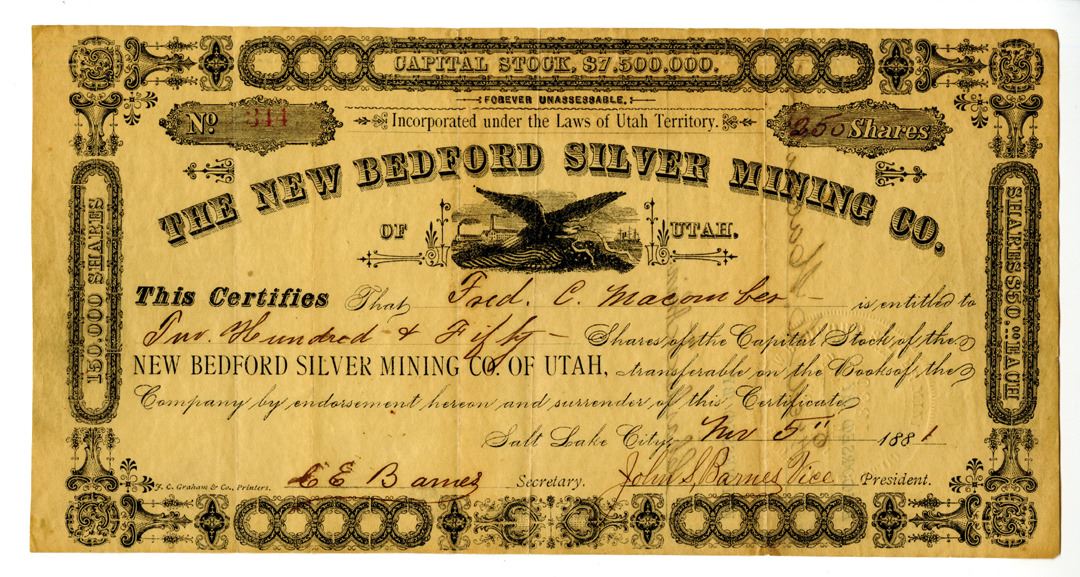 CAPITAL STOCK, $7,500,000.
FOREVER UNASSESSABLE,
Nº 344
Incorporated under the Laws of Utah Territory.
250 Shares
THE NEW BEDFORD SILVER MINING CO.
OF UTAH.
150.000 SHARES
SHARES $50.00 EACH
This Certifies That Fred. C. Macomber is entitled to
Two Hundred & Fifty Shares of the Capital Stock of the
NEW BEDFORD SILVER MINING CO. OF UTAH, transferable on the Books of the
Company by endorsement hereon and surrender of this Certificate
Salt Lake City, Nov 5" 1881
J. C. Graham & Co., Printers.
C E Barnes Secretary. John S. Barnes Vice President.